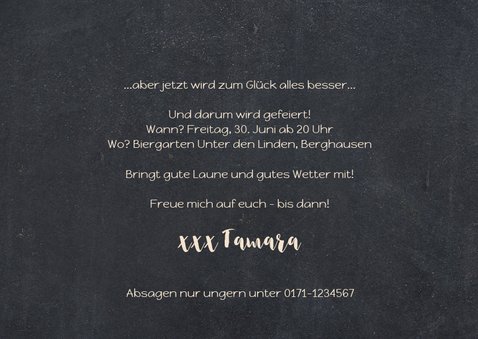 ...aber jetzt wird zum Glück alles besser...
Und darum wird gefeiert!
Wann? Freitag, 30. Juni ab 20 Uhr
Wo? Biergarten Unter den Linden, Berghausen
Bringt gute Laune und gutes Wetter mit!
Freue mich auf euch - bis dann!
xxx Tamara
Absagen nur ungern unter 0171-1234567